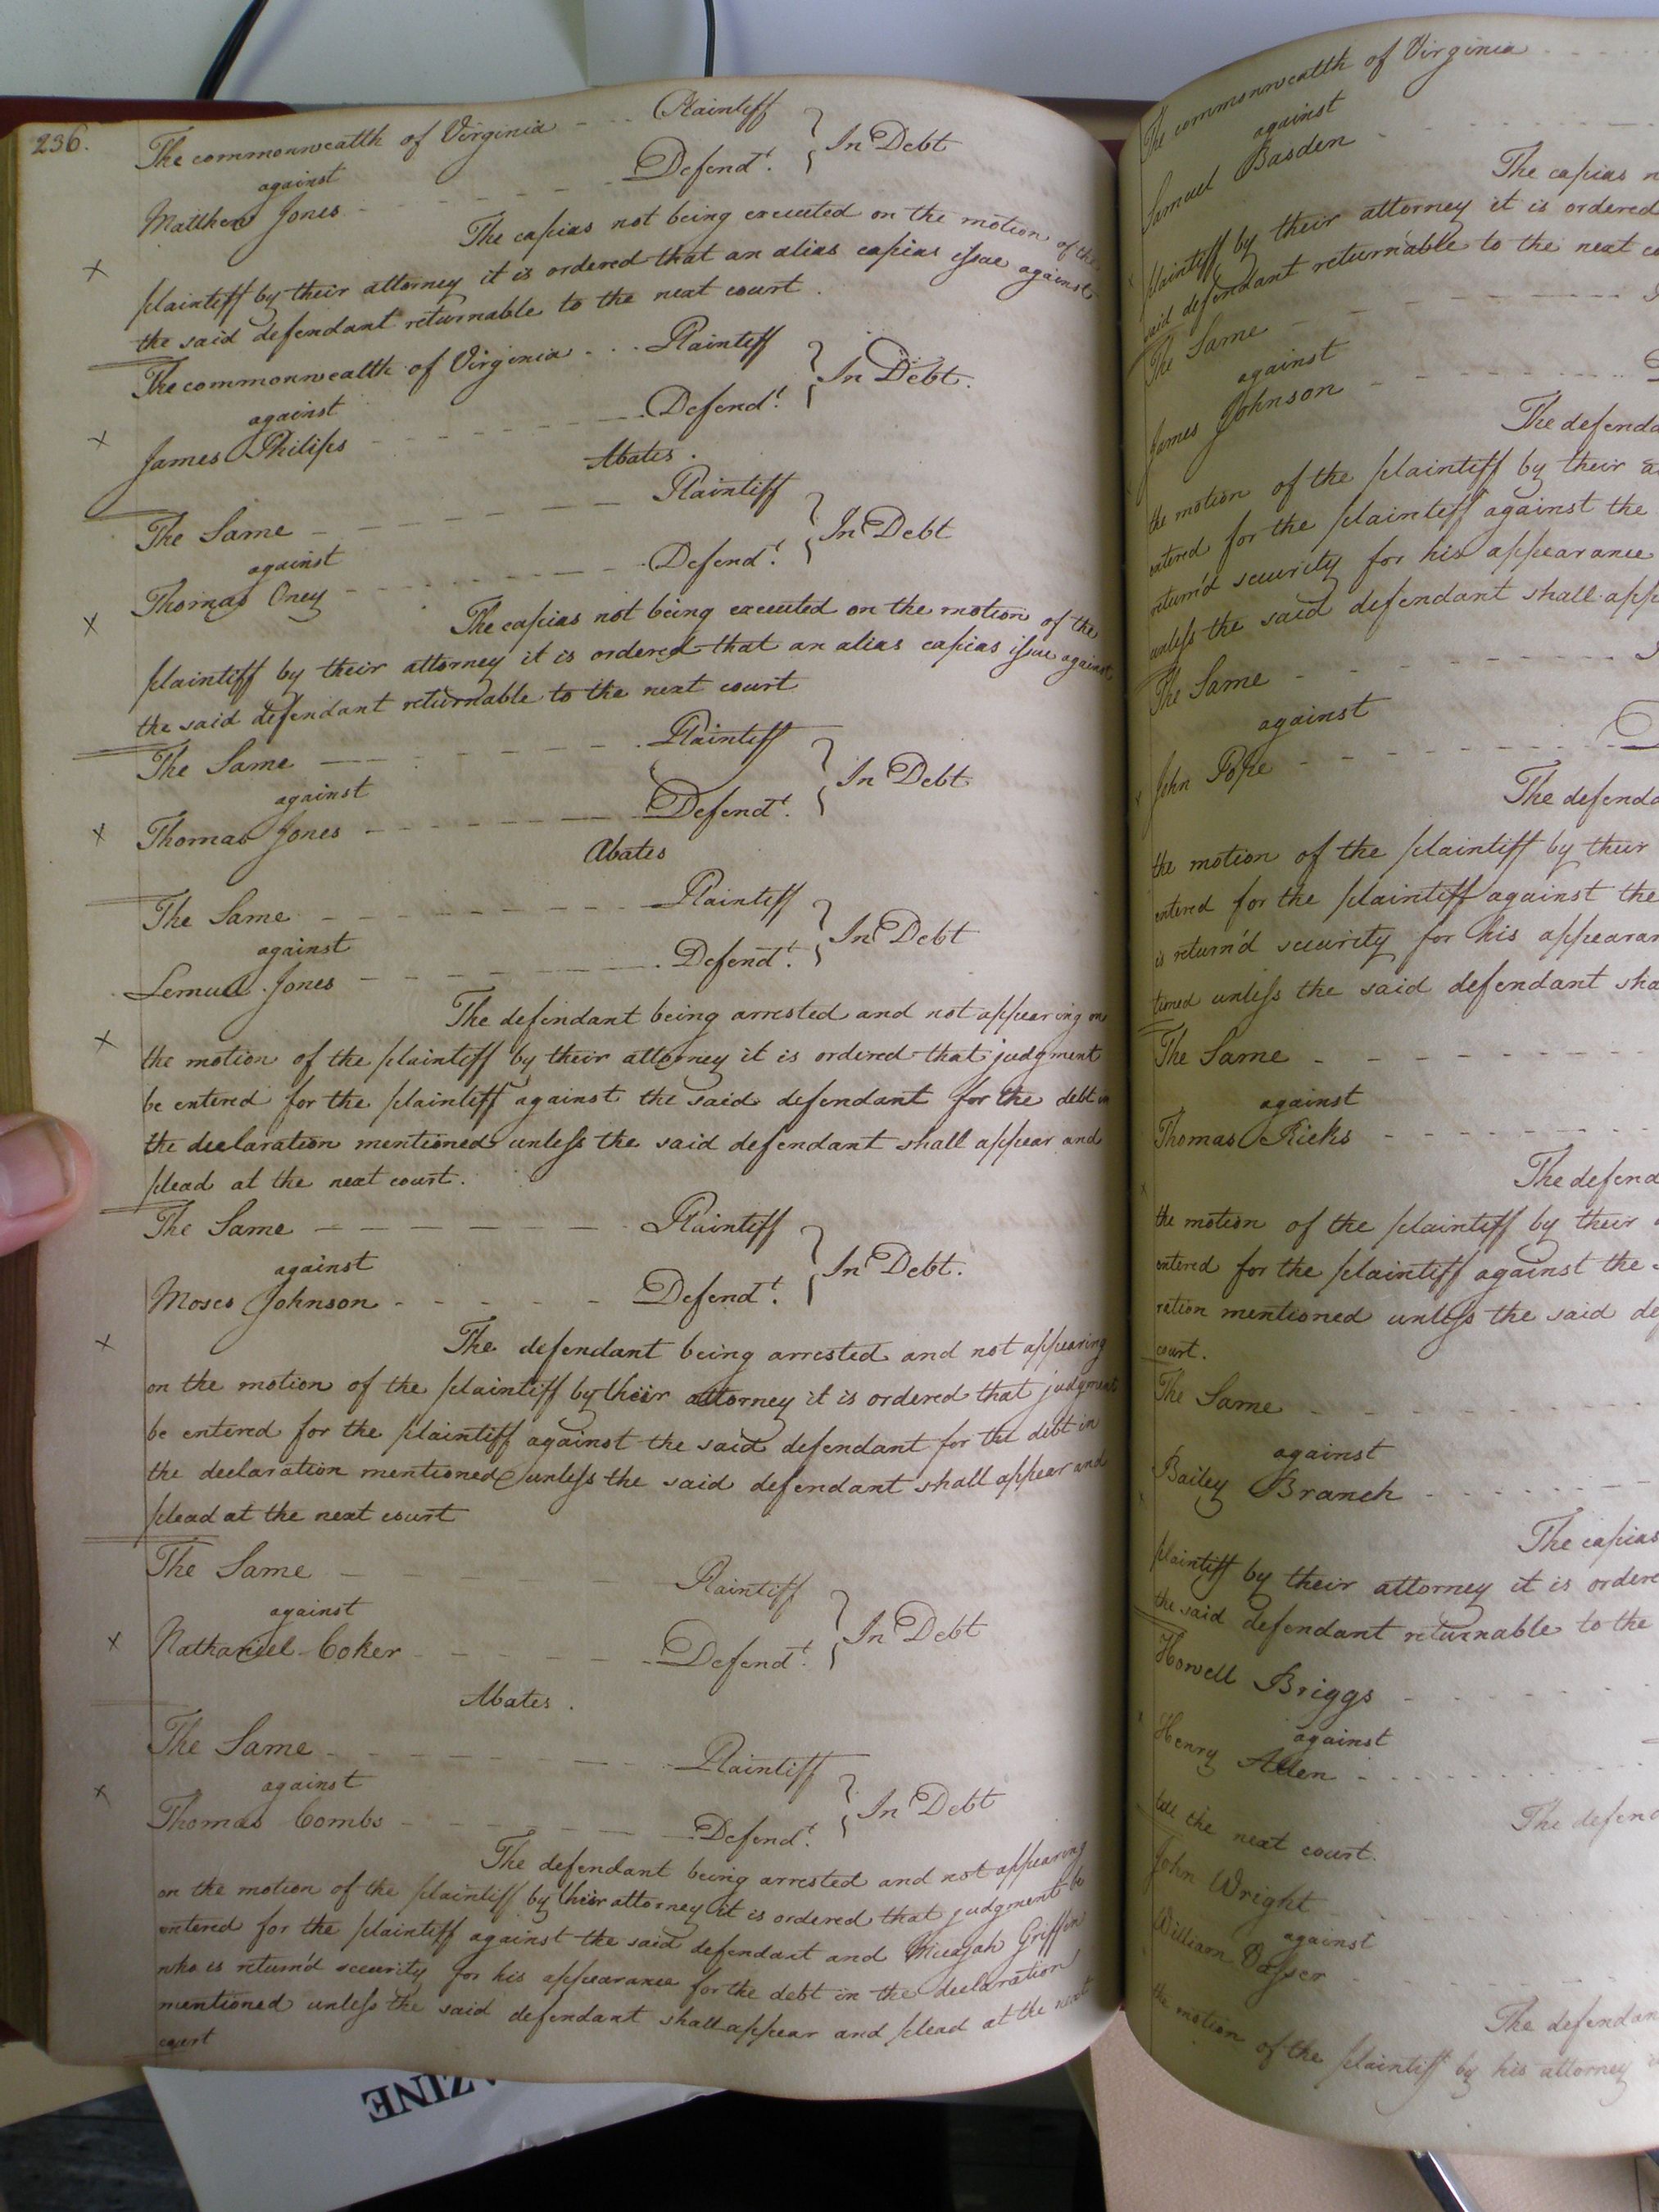 236.
The commonwealth of Virginia - - - Plaintiff
against } In Debt
Matthew Jones - - - Defendt.
The capias not being executed on the motion of the
plaintiff by their attorney it is ordered that an alias capias issue against
the said defendant returnable to the next court.
The commonwealth of Virginia - - - Plaintiff
against } In Debt.
James Philips - - - Defendt.
Abates.
The Same - - - Plaintiff
against } In Debt
Thomas Oney - - - Defendt.
The capias not being executed on the motion of the
plaintiff by their attorney it is ordered that an alias capias issue against
the said defendant returnable to the next court
The Same - - - Plaintiff
against } In Debt
Thomas Jones - - - Defendt.
Abates
The Same - - - Plaintiff
against } In Debt
Lemuel Jones - - - Defendt.
The defendant being arrested and not appearing on
the motion of the plaintiff by their attorney it is ordered that judgment
be entered for the plaintiff against the said defendant for the debt in
the declaration mentioned unless the said defendant shall appear and
plead at the next court.
The Same - - - Plaintiff
against } In Debt.
Moses Johnson - - - Defendt.
The defendant being arrested and not appearing
on the motion of the plaintiff by their attorney it is ordered that judgment
be entered for the plaintiff against the said defendant for the debt in
the declaration mentioned unless the said defendant shall appear and
plead at the next court
The Same - - - Plaintiff
against } In Debt
Nathaniel Coker - - - Defendt.
Abates.
The Same - - - Plaintiff
against } In Debt
Thomas Combs - - - Defendt.
The defendant being arrested and not appearing
on the motion of the plaintiff by their attorney it is ordered that judgment be
entered for the plaintiff against the said defendant and Micajah Griffin
who is return'd security for his appearance for the debt in the declaration
mentioned unless the said defendant shall appear and plead at the next
court
The commonwealth of Virginia - - -
against
Samuel Basden - - -
The capias n
plaintiff by their attorney it is ordered
said defendant returnable to the next co
The Same - - -
against
James Johnson - - -
The defenda
the motion of the plaintiff by their a
entered for the plaintiff against the
return'd security for his appearance
unless the said defendant shall app
The Same - - -
against
John Pope - - -
The defenda
the motion of the plaintiff by their
entered for the plaintiff against the
is return'd security for his appearan
tioned unless the said defendant sha
The Same - - -
against
Thomas Ricks - - -
The defend
the motion of the plaintiff by their
entered for the plaintiff against the
ration mentioned unless the said de
court.
The Same - - -
against
Bailey Branch - - -
The capias
plaintiff by their attorney it is ordere
the said defendant returnable to the
Howell Briggs - - -
against
Henry Allen - - -
The defend
till the next court.
John Wright
against
William Vasser - - -
The defendan
the motion of the plaintiff by his attorney
AZINE